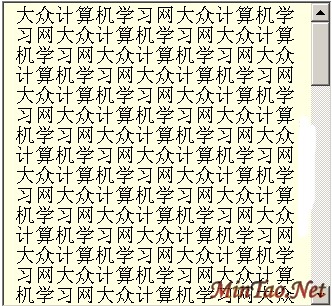 大众计算机学习网大众计算机学
习网大众计算机学习网大众计算
机学习网大众计算机学习网大众
计算机学习网大众计算机学习网
大众计算机学习网大众计算机学
习网大众计算机学习网大众计算
机学习网大众计算机学习网大众
计算机学习网大众计算机学习网
大众计算机学习网大众计算机学
习网大众计算机学习网大众计算
机学习网大众计算机学习网大众
计算机学习网大众计算机学习网
大众计算机学习网大众计算机学
习网大众计算机学习网大众计算
机学习网大众计算机学习网大众
MinTao.Net